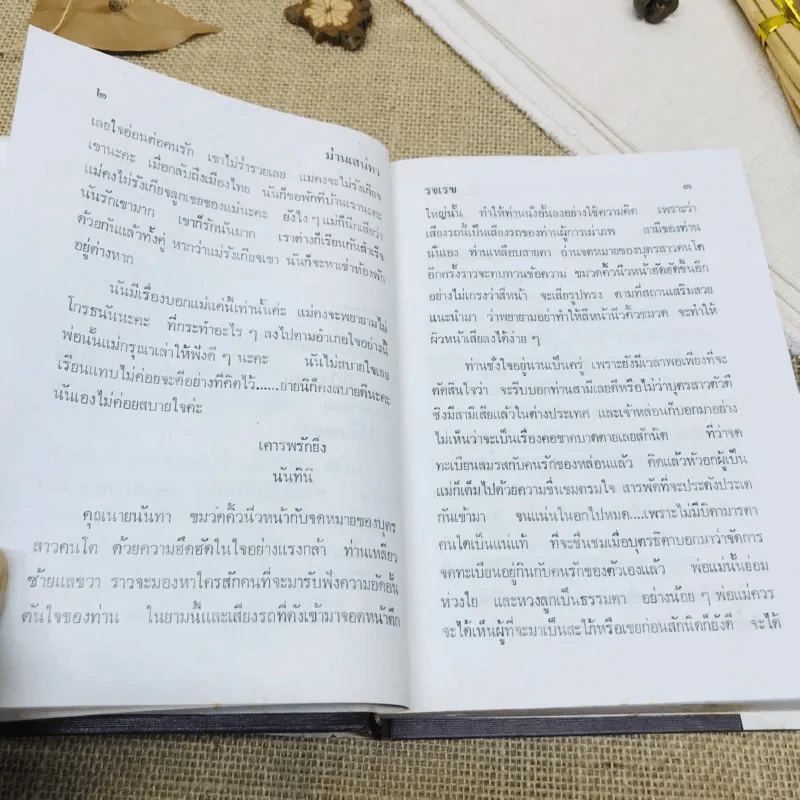 ๒
ม่านเสน่หา
เลยใจอ่อนต่อคนรัก เขาไม่ร่ำรวยเลย แม่คงจะไม่รังเกียจ
เขานะคะ เมื่อกลับถึงเมืองไทย นันก็ขอพักที่บ้านเรานะคะ
แม่คงไม่รังเกียจลูกเขยของแม่นะคะ ยังไง ๆ แม่ก็นึกเสียว่า
นันรักเขามาก เขาก็รักนันมาก เราต่างก็เรียนกันสำเร็จ
ด้วยกันแล้วทั้งคู่ หากว่าแม่รังเกียจเขา นันก็จะหาเช่าห้องพัก
อยู่ต่างหาก
นันมีเรื่องบอกแม่แค่นี้เท่านั้นค่ะ แม่คงจะพยายามไม่
โกรธนันนะคะ ที่กระทำอะไร ๆ ลงไปตามอำเภอใจอย่างนี้
พ่อนั้นแม่กรุณาเล่าให้ฟังดี ๆ นะคะ นันไม่สบายใจเลย
เรียนแทบไม่ค่อยจะดีอย่างที่คิดไว้......ยายนิก็คงสบายดีนะคะ
นันเองไม่ค่อยสบายใจค่ะ
เคารพรักยิ่ง
นันทินี
คุณนายนันทา ขมวดคิ้วนิ่วหน้ากับจดหมายของบุตร
สาวคนโต ด้วยความฮึดฮัดในใจอย่างแรงกล้า ท่านเหลียว
ซ้ายแลขวา ราวจะมองหาใครสักคนที่จะมารับฟังความอัดอั้น
ตันใจของท่าน ในยามนี้และเสียงรถที่ดังเข้ามาจอดหน้าตึก
รจเรข
๓
ใหญ่นั้น ทำให้ท่านนั่งอั้นลงอย่างใช้ความคิด เพราะว่า
เสียงรถนี้เป็นเสียงรถของท่านผู้การเผ่าภพ สามีของท่าน
นั่นเอง ท่านเหลือบสายตา อ่านจดหมายของบุตรสาวคนโต
อีกครั้งราวจะทบทวนข้อความ ขมวดคิ้วนิ่วหน้าฮึดฮัดขึ้นอีก
อย่างไม่เกรงว่าสีหน้า จะเสียรูปทรง ตามที่สถานเสริมสวย
แนะนำมา ว่าพยายามอย่าทำให้สีหน้านิ่วคิ้วขมวด จะทำให้
ผิวหน้าเสียลงได้ง่าย ๆ
ท่านชั่งใจอยู่นานเป็นครู่ เพราะยังมีเวลาพอเพียงที่จะ
ตัดสินใจว่า จะรีบบอกท่านสามีเลยดีหรือไม่ว่าบุตรสาวตัวดี
ซึ่งมีสามีเสียแล้วในต่างประเทศ และเจ้าหล่อนก็บอกมาอย่าง
ไม่เห็นว่าจะเป็นเรื่องคอขาดบาดตายเลยสักนิด ที่ว่าจด
ทะเบียนสมรสกับคนรักของหล่อนแล้ว คิดแล้วหัวอกผู้เป็น
แม่ก็เต็มไปด้วยความขื่นขมตรมใจ สารพัดที่จะประดังประเด
กันเข้ามา จนแน่นในอกไปหมด....เพราะไม่มีบิดามารดา
คนใดเป็นแน่แท้ ที่จะชื่นชมเมื่อบุตรธิดาบอกมาว่าจัดการ
จดทะเบียนอยู่กินกับคนรักของตัวเองแล้ว พ่อแม่นั้นย่อม
ห่วงใย และหวงลูกเป็นธรรมดา อย่างน้อย ๆ พ่อแม่ควร
จะได้เห็นผู้ที่จะมาเป็นสะใภ้หรือเขยก่อนสักนิดก็ยังดี จะได้